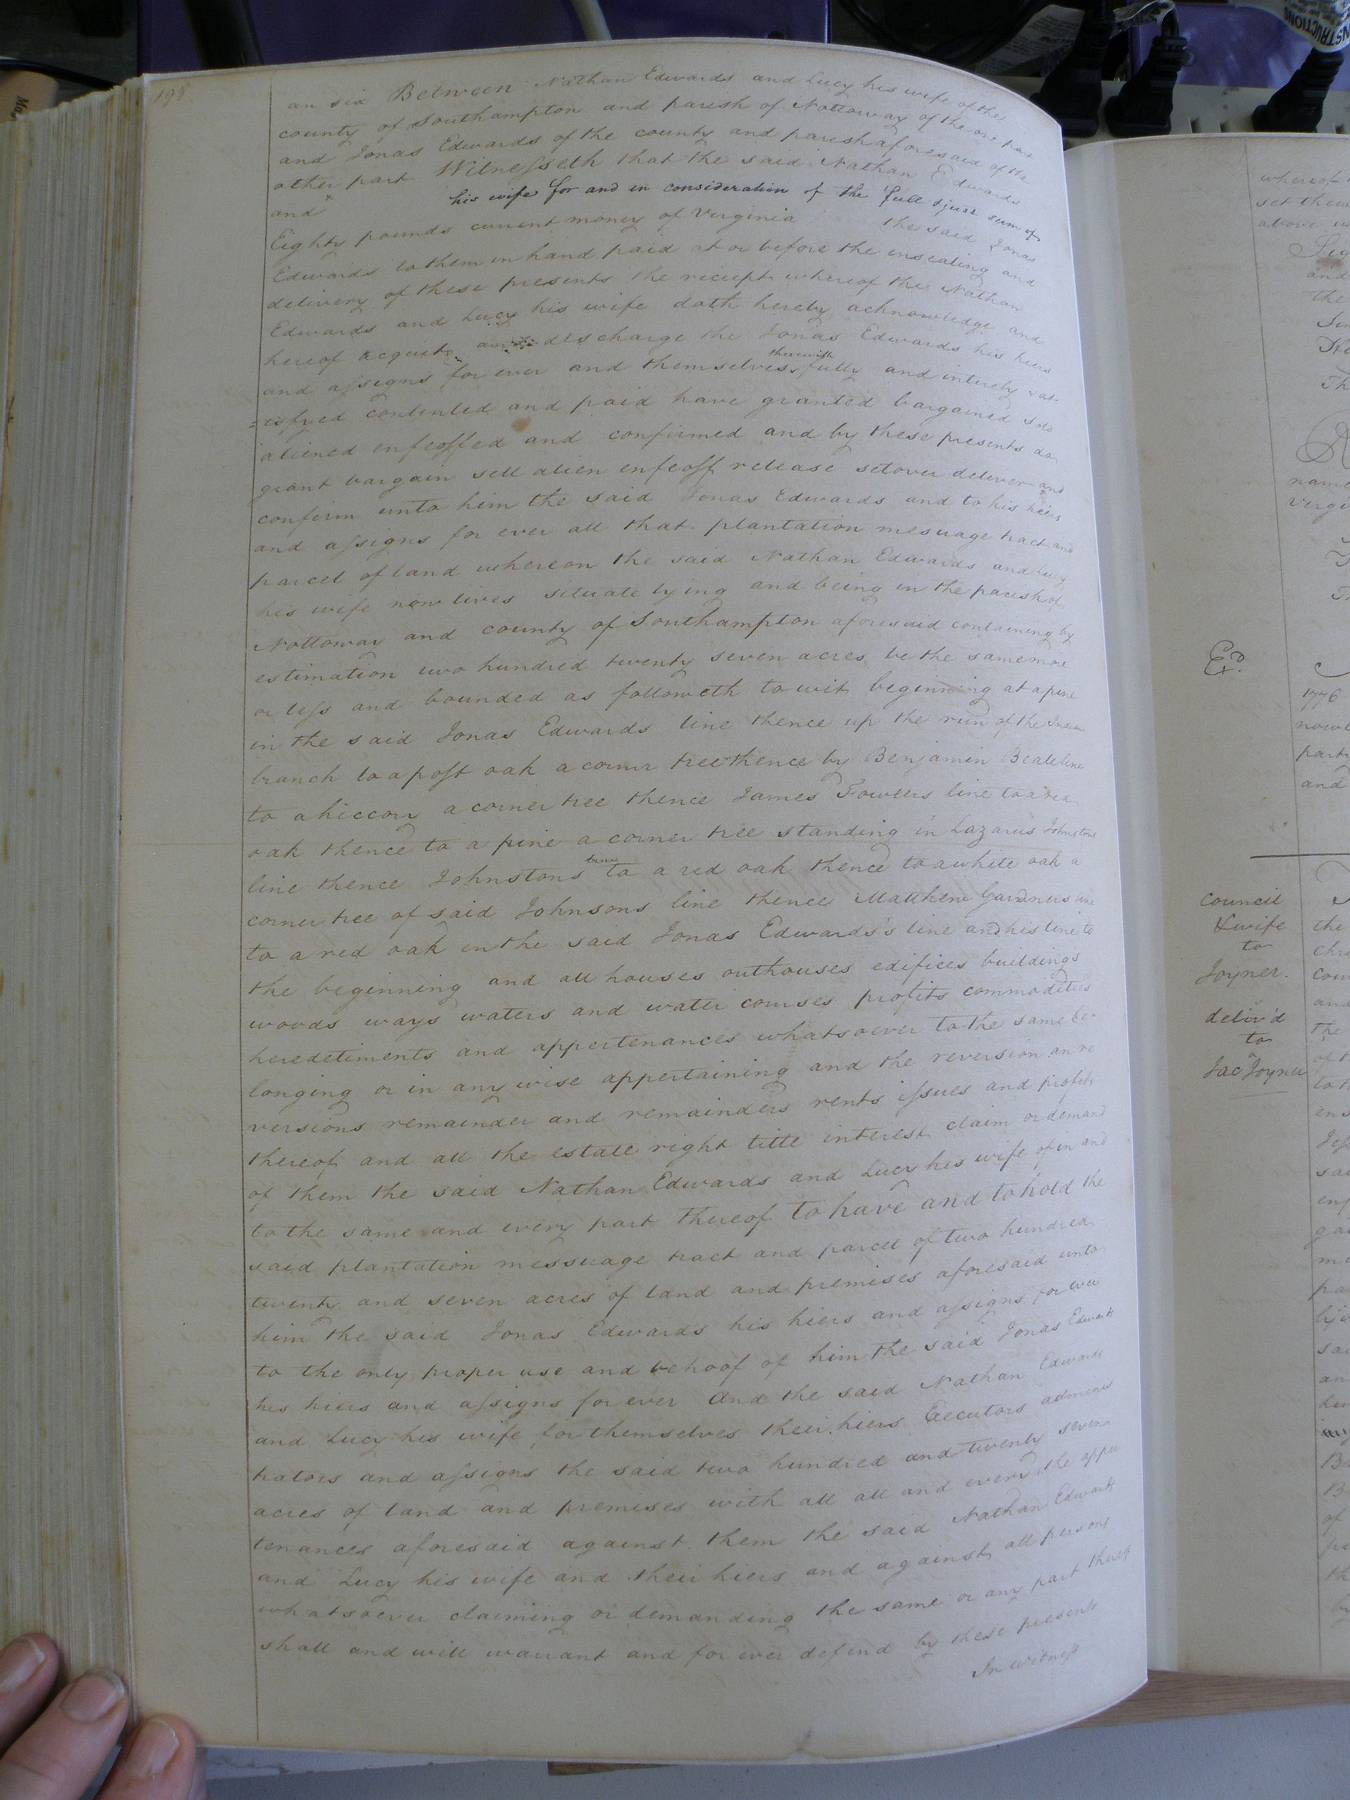 198
an six Between Nathan Edwards and Lucy his wife of the
county of Southampton and parish of Nottoway of the one part
and Jonas Edwards of the county and parish aforesaid of the
other part Witnesseth that the said Nathan Edwards
and his wife for and in consideration of the full & just sum of
Eighty pounds current money of Virginia the said Jonas
Edwards to them in hand paid at or before the ensealing and
delivery of these presents the reciept whereof the Nathan
Edwards and Lucy his wife doth hereby acknowledge and
hereof acquit and discharge the Jonas Edwards his hiers
and assigns for ever and themselves therewith fully and intirely sat
=isfyed contented and paid have granted bargained sold
aliened enfeoffed and confirmed and by these presents do
grant bargain sell alien enfeoff release setover deliver and
confirm unto him the said Jonas Edwards and to his heirs
and assigns for ever all that plantation mesuage tract and
parcel of land whereon the said Nathan Edwards and Lucy
his wife now lives situate lying and being in the parish of
Nottoway and county of Southampton aforesaid containing by
estimation two hundred twenty seven acres be the same more
or less and bounded as followeth to wit beginning at a pine
in the said Jonas Edwards line thence up the run of the
branch to a post oak a corner tree thence by Benjamin Beale line
to a hiccory a corner tree thence James Fowlers line to a red
oak thence to a pine a corner tree standing in Lazarus Johnstons
line thence Johnstons to a red oak thence to a white oak a
corner tree of said Johnsons line thence Matthew Gardners line
to a red oak in the said Jonas Edwards's line and his line to
the beginning and all houses outhouses edifices buildings
woods ways waters and water courses profits commodities
heredetiments and appertenances whatsoever to the same be=
longing or in any wise appertaining and the reversion an re
versions remainder and remainders rents issues and profits
thereof and all the estate right title interest claim or demand
of them the said Nathan Edwards and Lucy his wife of in and
to the same and every part thereof to have and to hold the
said plantation messuage tract and parcel of two hundred
twenty and seven acres of land and premises aforesaid unto
him the said Jonas Edwards his hiers and assigns for ever
to the only proper use and behoof of him the said Jonas Edwards
his hiers and assigns for ever And the said Nathan Edwards
and Lucy his wife for themselves their hiers Executors adminis
trators and assigns the said two hundred and twenty seven
acres of land and premises with all all and every the appur
tenances aforesaid against them the said Nathan Edwards
and Lucy his wife and their hiers and against all persons
whatsoever claiming or demanding the same or any part thereof
shall and will warrant and for ever defend by these presents
In witness
whereof
set their
above
and
the
Th
name
Virgi
Ex.d
1776
part
and
Council
& wife
to
Joyner.
deliv'd
to
Jac. Joyner
the
of
to